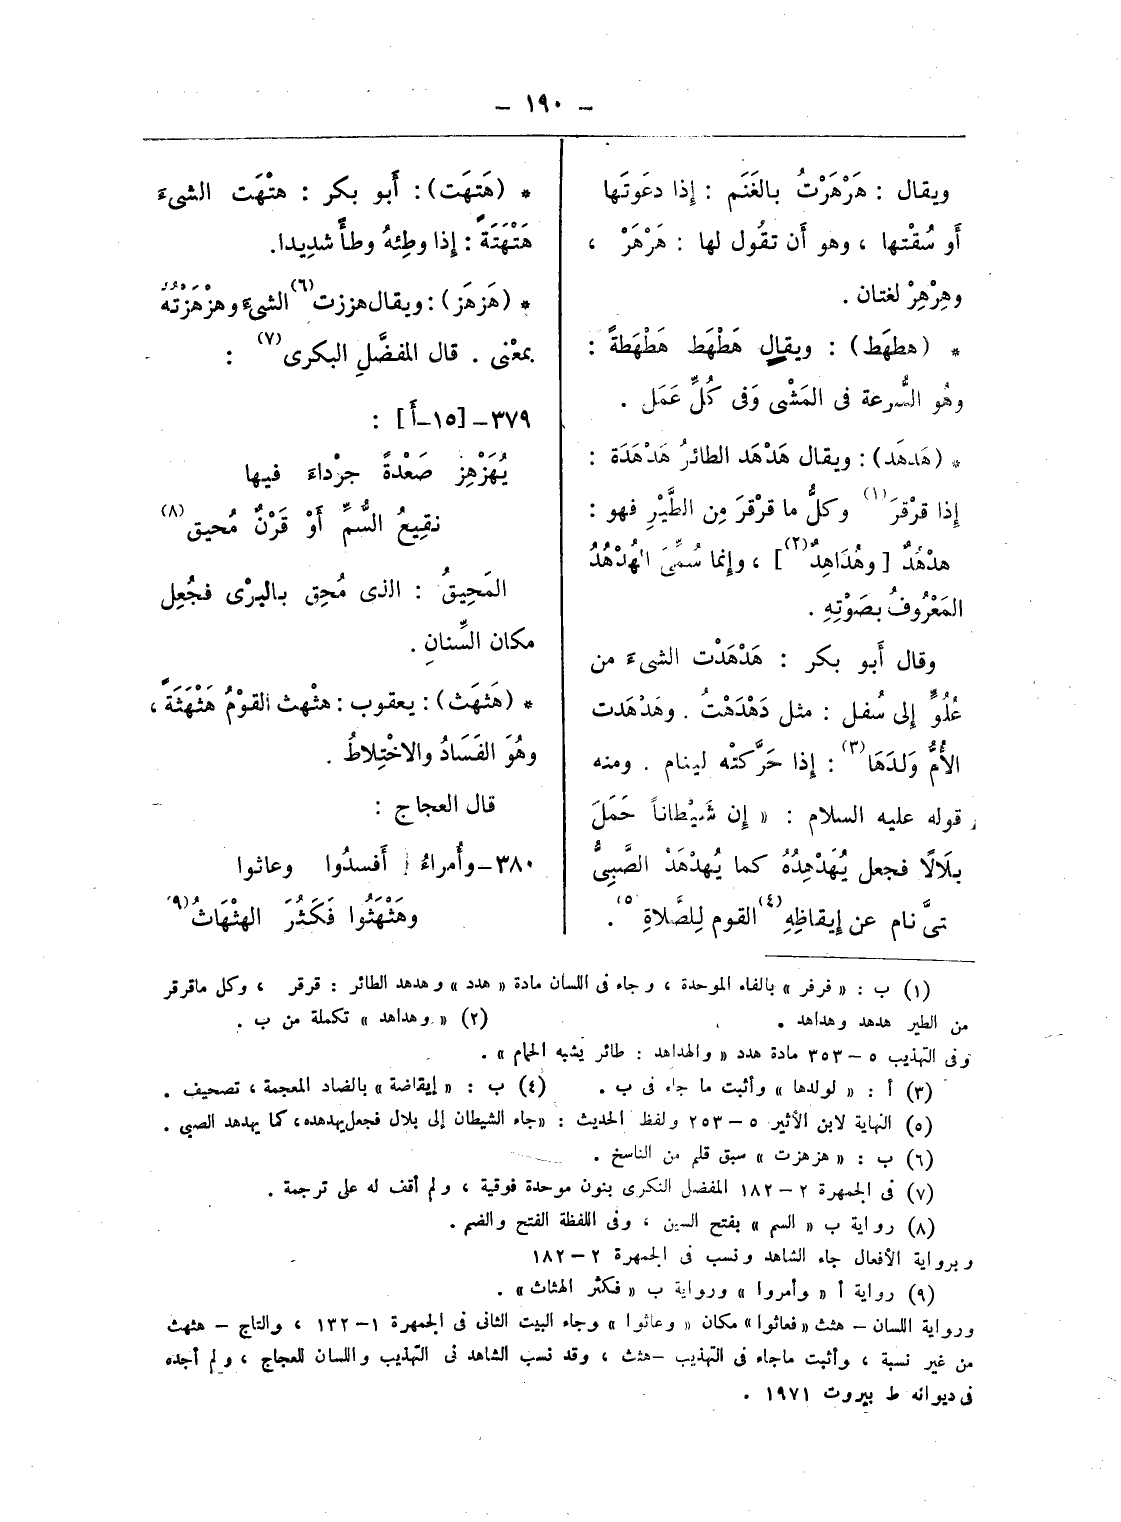 - ١٩٠ -
ويقال : هَرْهَرْتُ بالغَنَم : إذا دعَوتَها
أو سُقْتها ، وهو أن تقُول لها : هَرْهَرْ ،
وهِرْهِرْ لغتان .
* (هطهَط) : ويقال هَطْهَط هَطْهَطةً :
وهُو السُّرعة فى المَشْى وَفى كُلِّ عَمَل .
* (هَدهَد) : ويقال هَدْهَد الطائرُ هَدْهَدَة :
إذا قرْقرَ(١) وكلُّ ما قرْقرَ مِن الطَّيْرِ فهو :
هدْهُدٌ [ وهُدَاهِدٌ(٢) ] ، وإنما سُمِّىَ الهُدْهُدُ
المَعْرُوفُ بصَوْتِهِ .
وقال أَبو بكر : هَدْهَدْت الشىءَ من
عُلُوٍّ إلى سُفل : مثل دَهْدَهْتُ . وهَدْهَدت
الأُمُّ وَلدَهَا(٣) : إذا حَرَّكتْه لينام . ومنه
قوله عليه السلام : « إن شَيْطاناً حَمَلَ
بلَالًا فجعل يُهَدْهِدُهُ كما يُهدْهَدُ الصَّبِىُّ
تىَّ نام عن إيقاظِهِ(٤) القوم لِلصَّلاةِ(٥) .
* (هَتهَت) : أَبو بكر : هتْهَت الشىءَ
هَتْهَتَةً : إذا وطِئهُ وطأً شدِيدا.
* (هَزهَز) : ويقال هززت(٦) الشىءَ وهزْهَزْتهُ
بمعْنى . قال المفضَّلِ البكرى(٧) :
٣٧٩- [١٥-أَ] :
يُهَزْهِز صَعْدةً جرْداءَ فيها
نقِيعُ السُّمِّ أَوْ قَرْنٌ مُحيق(٨)
المَحِيقُ : الذى مُحِق بالبرْى فجُعِل
مكان السِّنانِ .
* (هَثهَث) : يعقوب : هثْهث القوْمُ هَثْهَثَةً ،
وهُوَ الفَسَادُ والاخْتِلاطُ .
قال العجاج :
٣٨٠-وأُمراءُ أَفسدُوا وعاثوا
وهَثْهَثُوا فَكَثُرَ الهثْهاثُ(٩)
(١) ب : « فرفر » بالفاء الموحدة ، وجاء فى اللسان مادة « هدد » وهدهد الطائر : قرقر ، وكل ماقرقر
من الطير هدهد وهداهد . (٢) « وهداهد » تكملة من ب .
وفى التهذيب ٥ - ٣٥٣ مادة هدد « والهداهد : طائر يشبه الحمام » .
(٣) أ : « لولدها » وأثبت ما جاء فى ب . (٤) ب : « إيقاضة » بالضاد المعجمة ، تصحيف .
(٥) النهاية لابن الأثير ٥ - ٢٥٣ ولفظ الحديث : «جاء الشيطان إلى بلال فجعل يهدهده، كما يهدهد الصبي .
(٦) ب : « هزهزت » سبق قلم من الناسخ .
(٧) فى الجمهرة ٢ - ١٨٢ المفضل النكرى بنون موحدة فوقية ، ولم أقف له على ترجمة .
(٨) رواية ب « السم » بفتح السين ، وفى اللفظة الفتح والضم .
وبرواية الأفعال جاء الشاهد ونسب فى الجمهرة ٢ - ١٨٢
(٩) رواية أ « وأمروا » ورواية ب « فكثر الهثاث » .
ورواية اللسان - هثث «فعاثوا» مكان « وعاثوا » وجاء البيت الثانى فى الجمهرة ١-١٣٢ ، والتاج - هثهث
من غير نسبة ، وأثبت ماجاء فى التهذيب -هثث ، وقد نسب الشاهد فى التهذيب واللسان للعجاج ، ولم أجده
فى ديوانه ط بيروت ١٩٧١ .